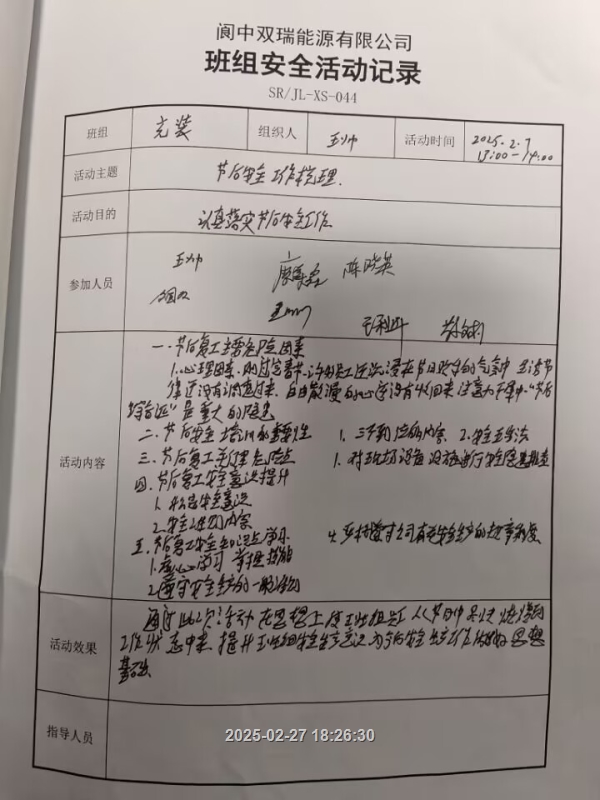 阆中双瑞能源有限公司
班组安全活动记录
SR/JL-XS-044
班组 充装 组织人 王帅 活动时间 2025.2.7
13:00-14:00
活动主题 节后安全工作梳理.
活动目的 认真落实节后安全工作
参加人员 王帅 陈晓英
活动内容
一.节后复工主要危险因素
1.心理因素.刚过完春节.许多员工还沉浸在节日欢乐的气氛中 生活节
律还没有调整过来.自由散漫的心还没有收回来 注意力不集中."节后
综合症"是重大的隐患
二.节后安全培训的重要性 1.三不到位的内容 2.安全五步法
三.节后复工先行查危险点 1.对现场设备设施进行安全隐患排查
四.节后复工安全意识提升
1.树立安全意识
2.安全培训内容
五.节后复工安全知识点学习 4.严格遵守公司有关安全生产的规章制度
1.虚心学习 掌握技能
2.遵守安全生产的一般规则
活动效果 通过此次活动 在思想上使班组员工从节日中尽快
工作状态中来.提升班组安全生产意识 为今后安全生产工作做好思想
基础
指导人员
2025-02-27 18:26:30